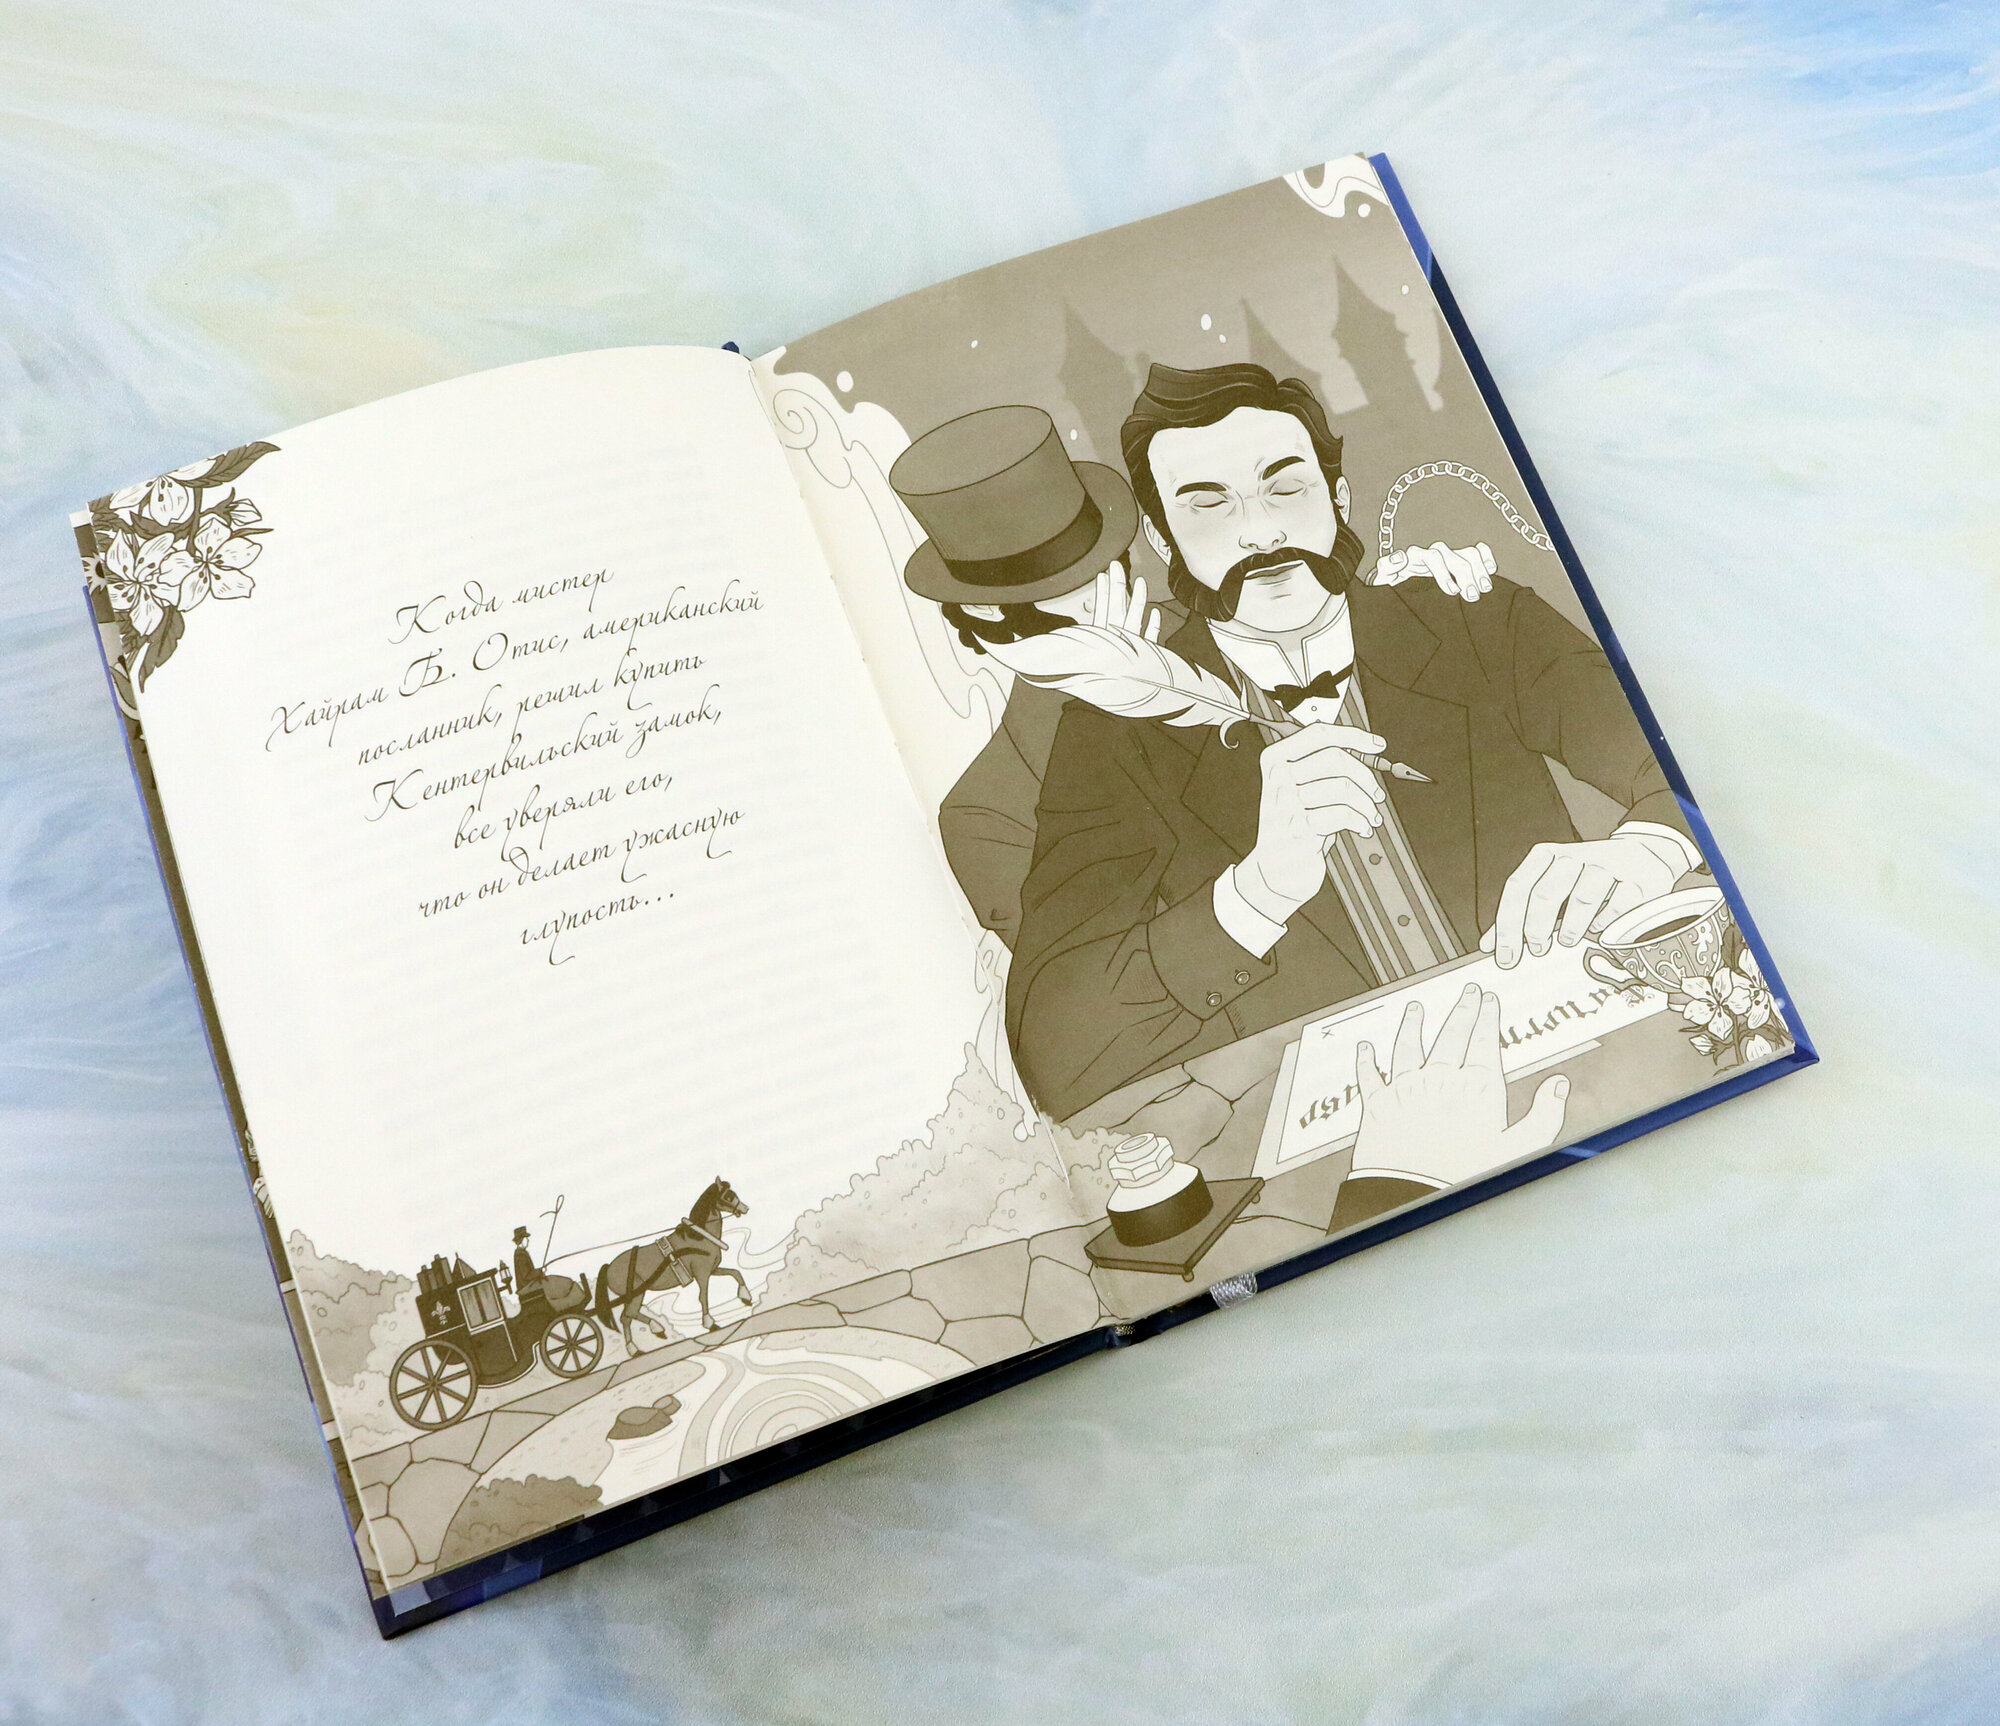 Когда мистер
Хайрам Б. Отис, американский
посланник, решил купить
Кентервильский замок,
все уверяли его,
что он делает ужасную
глупость...
x